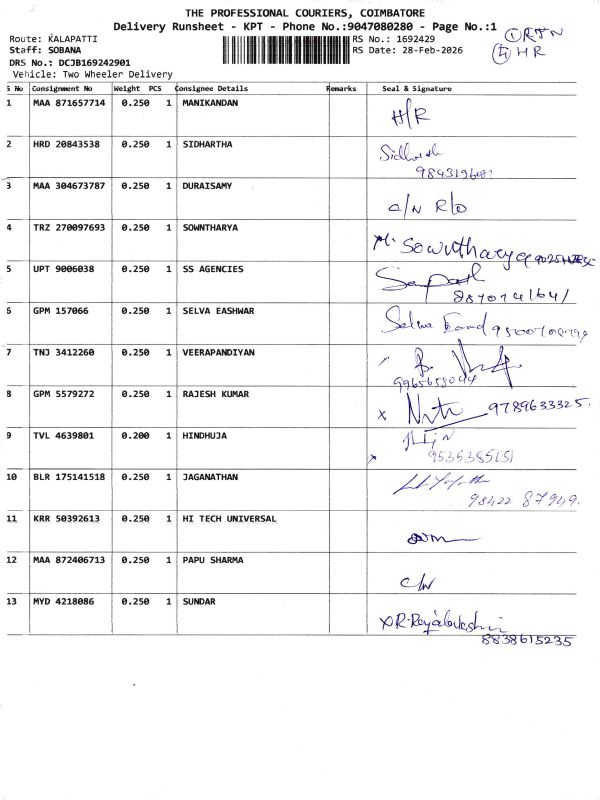 THE PROFESSIONAL COURIERS, COIMBATORE
Delivery Runsheet - KPT - Phone No.:9047080280 - Page No.:1
Route: KALAPATTI RS No.: 1692429
Staff: SOBANA RS Date: 28-Feb-2026
DRS No.: DCJB169242901
Vehicle: Two Wheeler Delivery
① RTN
④ HR
S No Consignment No Weight PCS Consignee Details Remarks Seal & Signature
1 MAA 871657714 0.250 1 MANIKANDAN H/R
2 HRD 20843538 0.250 1 SIDHARTHA Sidharth
3 MAA 304673787 0.250 1 DURAISAMY C/N R/O
4 TRZ 270097693 0.250 1 SOWNTHARYA M. Sowntharya
5 UPT 9006038 0.250 1 SS AGENCIES
6 GPM 157066 0.250 1 SELVA EASHWAR Selva
7 TNJ 3412260 0.250 1 VEERAPANDIYAN
8 GPM 5579272 0.250 1 RAJESH KUMAR 9789633325.
9 TVL 4639801 0.200 1 HINDHUJA
10 BLR 175141518 0.250 1 JAGANATHAN
98422 87949.
11 KRR 50392613 0.250 1 HI TECH UNIVERSAL
12 MAA 872406713 0.250 1 PAPU SHARMA C/N
13 MYD 4218086 0.250 1 SUNDAR
8838615235